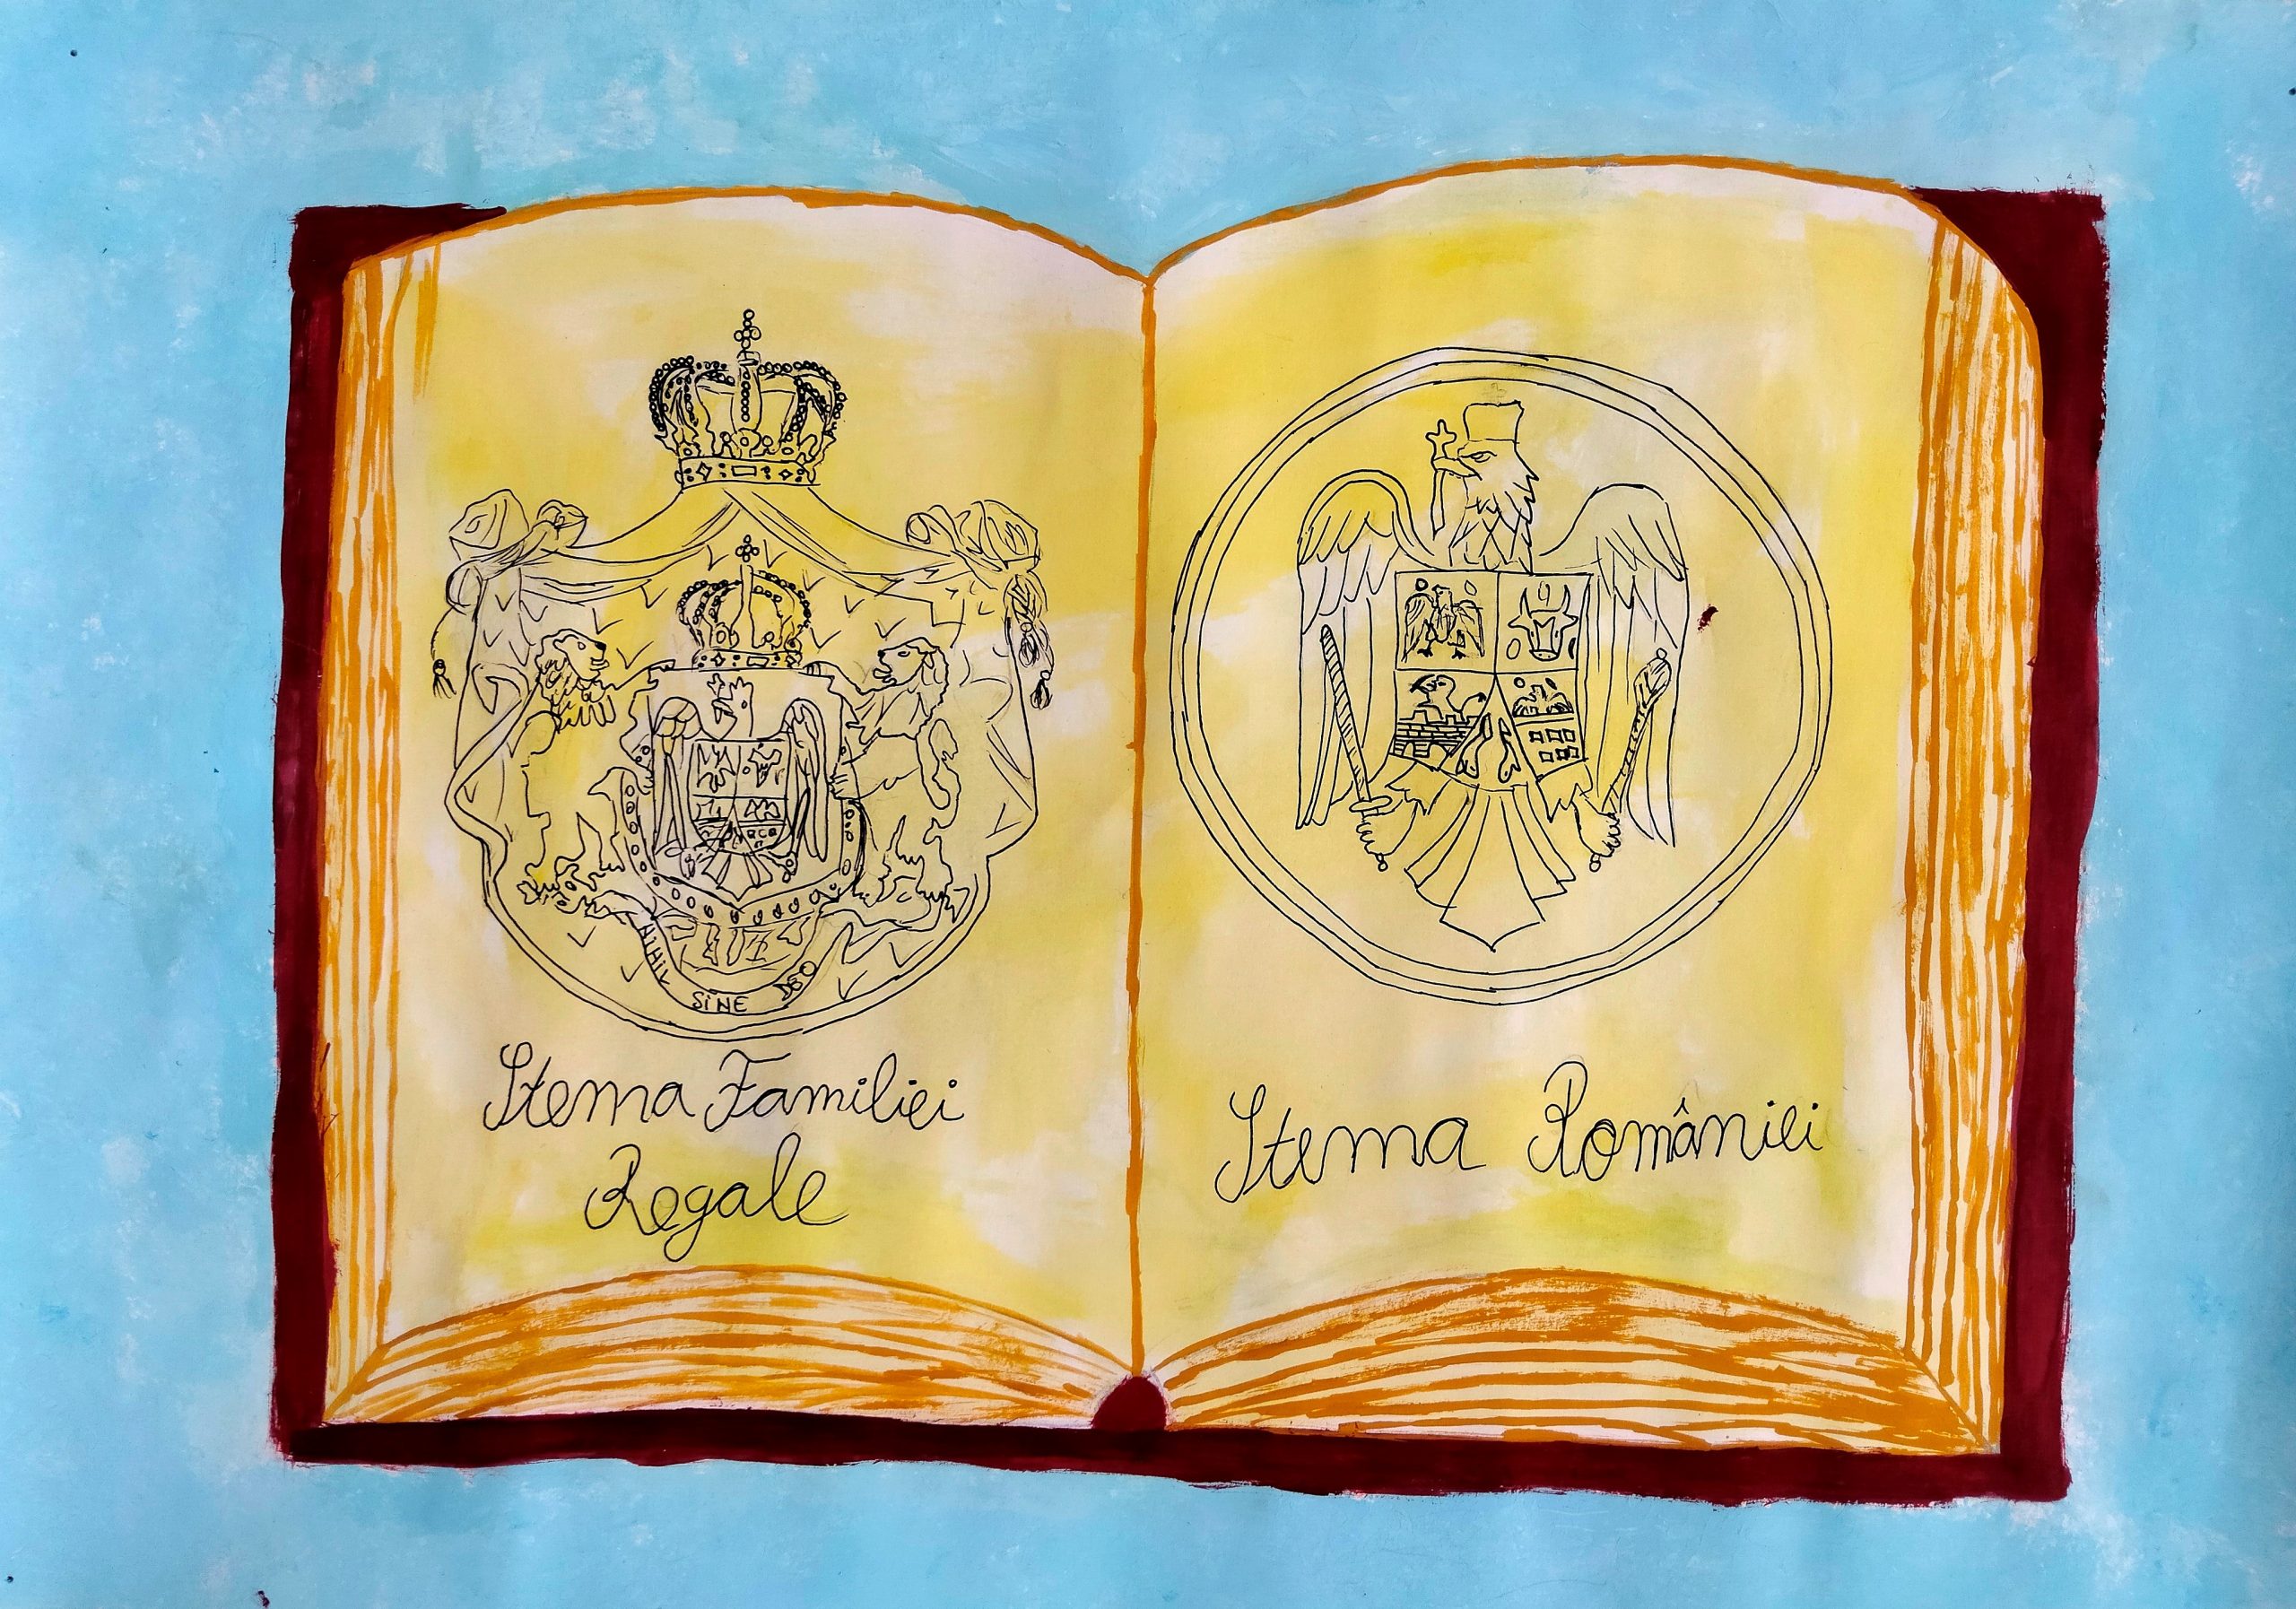 NIHIL
SINE
DEO
Stema Familiei
Regale
Stema României